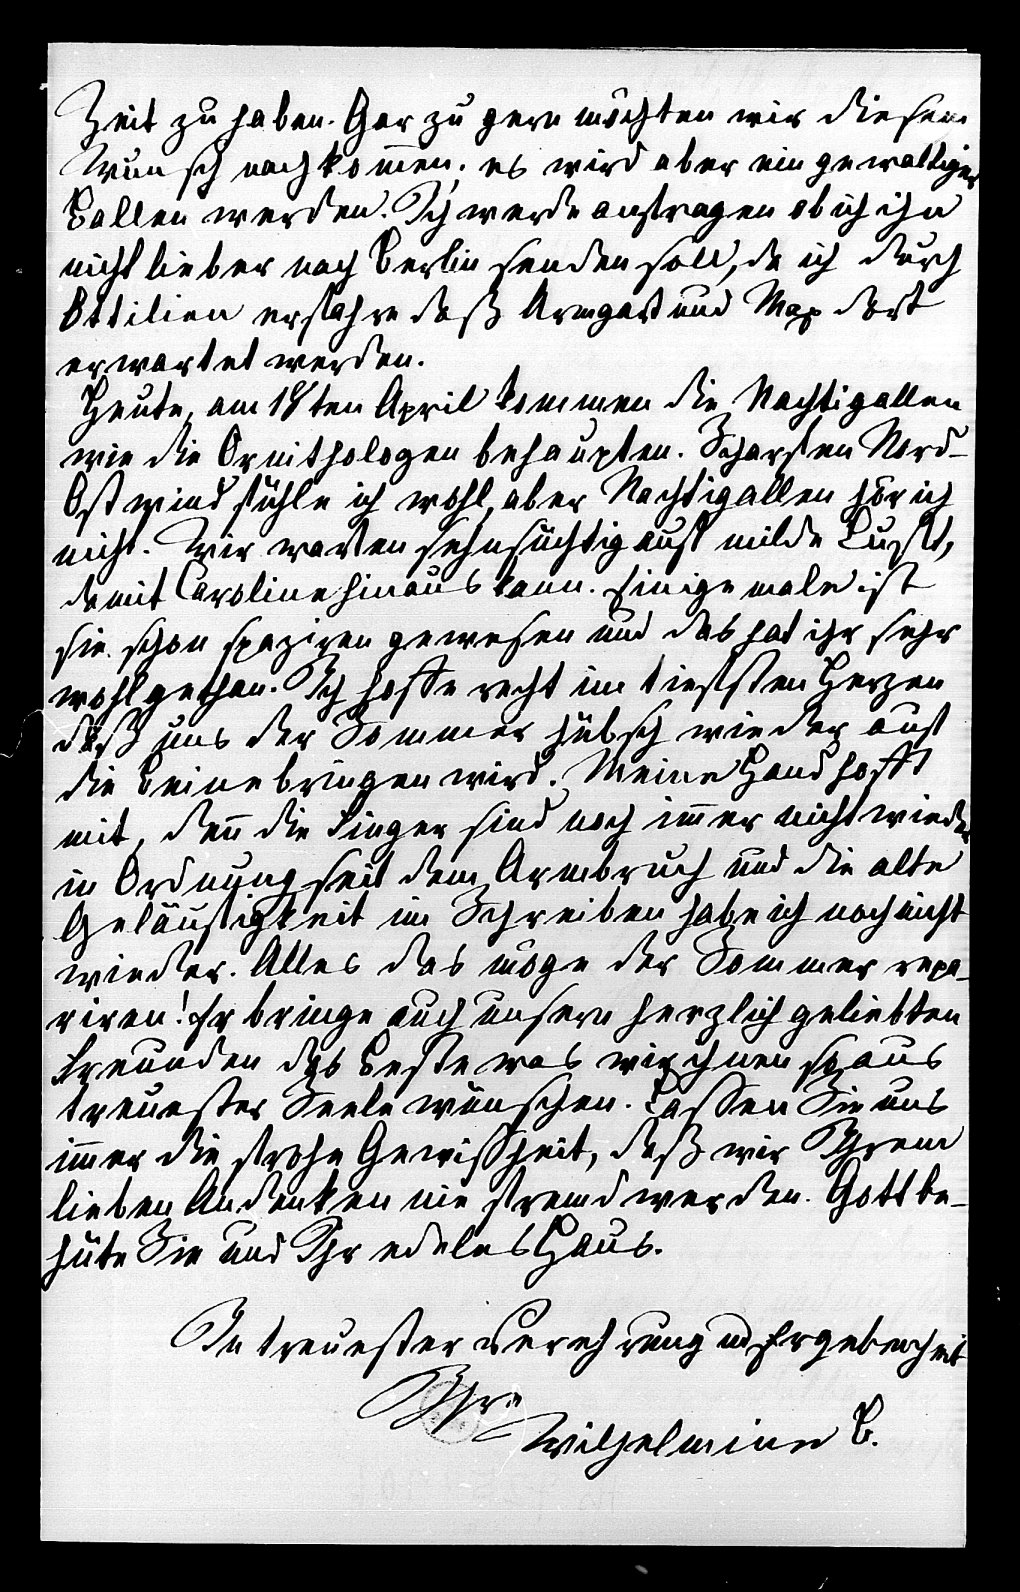 Zeit zu haben. Gar zu gern möchten wir diesem
Wunsch nachkom̄en; es wird aber ein gewaltiger
Ballen werden. Ich werde anfragen ob ich ihn
nicht lieber nach Berlin senden soll, da ich durch
Ottilien erfahre daß Armgart und Max dort
erwartet werden.
Heute, am 18ten April kommen die Nachtigallen
wie die Ornithologen behaupten. Scharfen Nord-
Ostwind fühle ich wohl, aber Nachtigallen hör ich
nicht. Wir warten sehnsüchtig auf milde Luft,
damit Caroline hinaus kann. Einige male ist
sie schon spaziren gewesen und das hat ihr sehr
wohl gethan. Ich hoffe recht im tiefsten Herzen
daß uns der Sommer hübsch wieder auf
die Beine bringen wird. Meine Hand hofft
mit, den̄ die Finger sind noch im̄er nicht wieder
in Ordnung seit dem Armbruch und die alte
Geläufigkeit im Schreiben habe ich noch nicht
wieder. Alles das möge der Sommer repa-
riren! Er bringe auch unsern herzlich geliebten
Freunden das Beste was wir ihnen so aus
treuester Seele wünschen. Lassen Sie uns
im̄er die frohe Gewißheit, daß wir Ihrem
lieben Andenken nie fremd werden. Gott be-
hüte Sie und Ihr edeles Haus.
In treuester Verehrung und Ergebenheit
Ihre
Wilhelmine B.